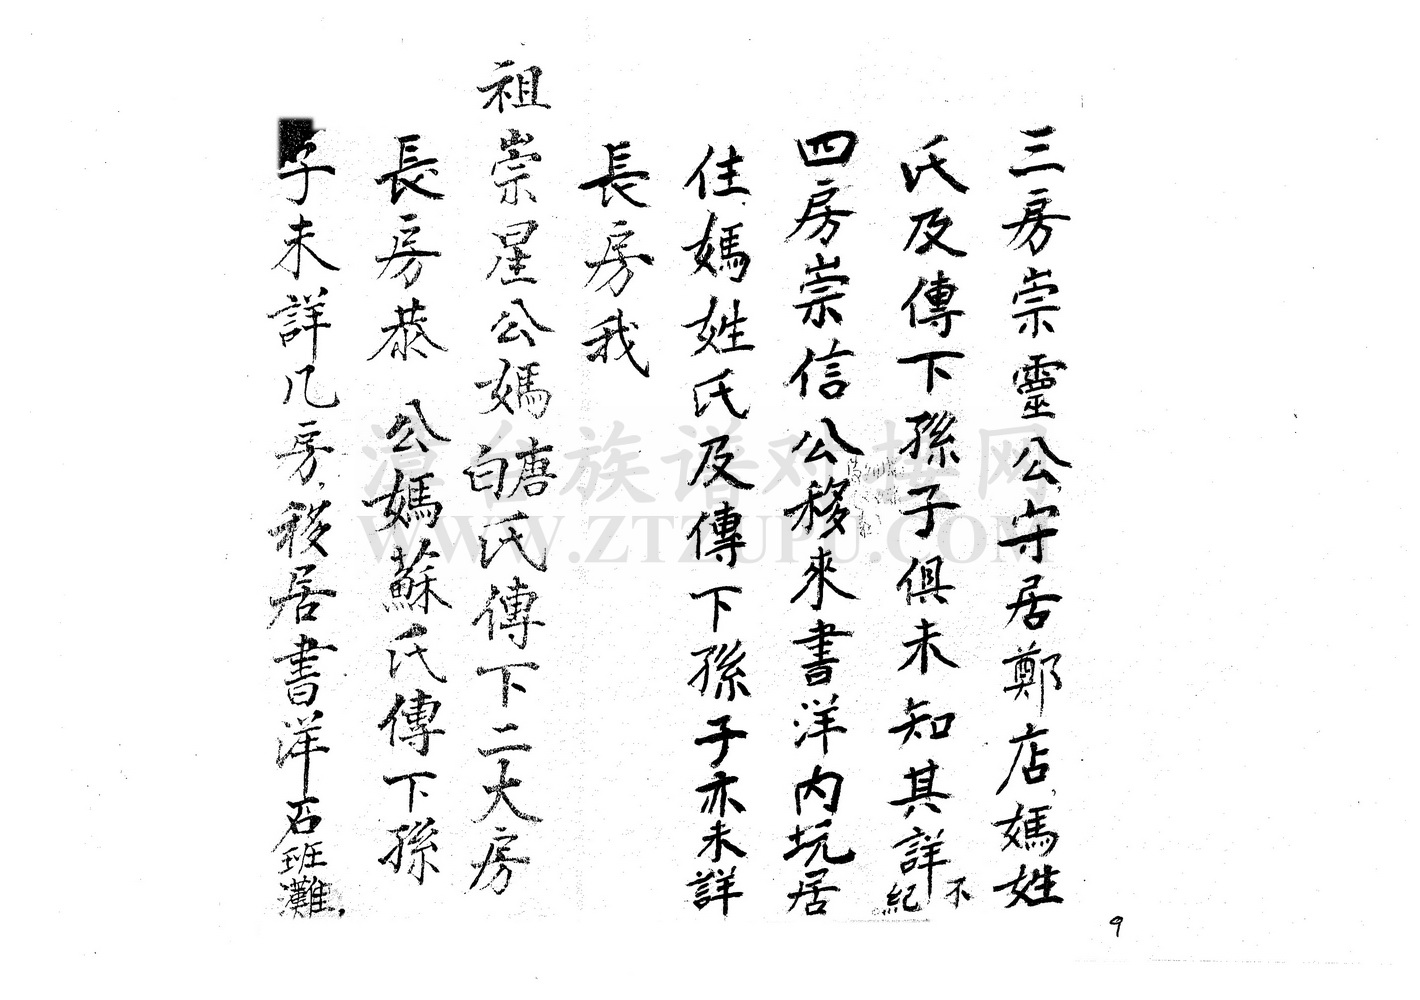 三房崇靈公守居鄭店媽姓
氏及傳下孫子俱未知其詳不紀
四房崇信公移來書洋內坑居
住媽姓氏及傳下孫子亦未詳
長房我
祖崇星公媽唐白氏傳下二大房
長房恭公媽蘇氏傳下孫
子未詳几房移居書洋石班灘
漳台族谱对接网
WWW.ZTZUPU.COM
9